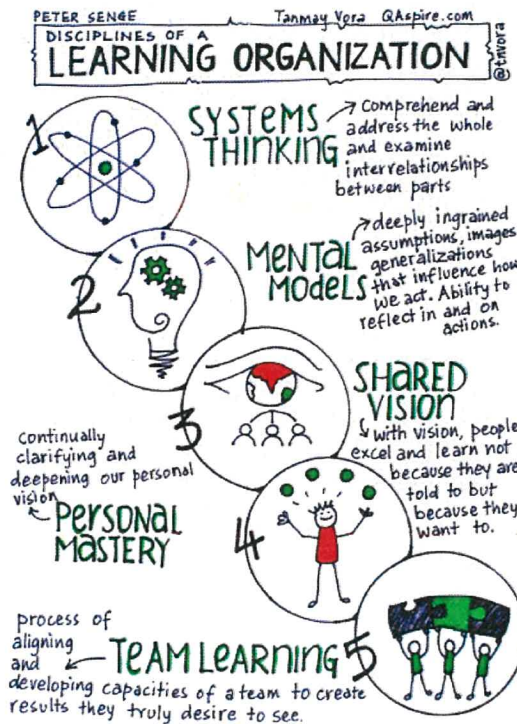 PETER SENGE
Tanmay Vora QAspire.com
DISCIPLINES OF A
LEARNING ORGANIZATION
@tnvora
1
SYSTEMS
THINKING
Comprehend and
address the whole
and examine
interrelationships
between parts
2
MENTAL
MODELS
deeply ingrained
assumptions, images
generalizations
that influence how
we act. Ability to
reflect in and on
actions.
3
SHARED
VISION
with vision, people
excel and learn not
because they are
told to but
because they
want to.
4
Continually
clarifying and
deepening our personal
vision
PERSONAL
MASTERY
5
TEAM LEARNING
process of
aligning
and
developing capacities of a team to create
results they truly desire to see.